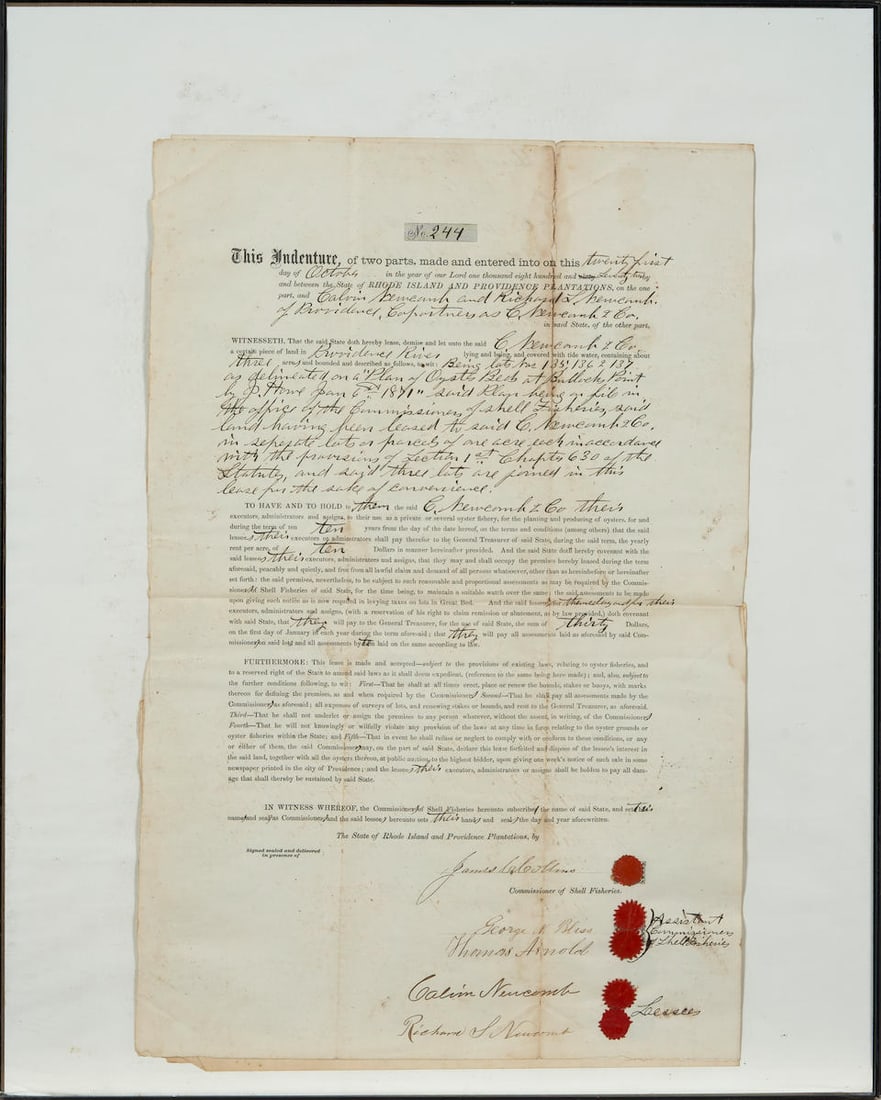 No. 244
This Indenture, of two parts, made and entered into on this twenty first
day of October in the year of our Lord one thousand eight hundred and by
and between the State of RHODE ISLAND AND PROVIDENCE PLANTATIONS, on the one
part, and Calvin Newcomb and Richard S. Newcomb
of Providence, Copartners as C. Newcomb & Co.
in said State, of the other part,
WITNESSETH, That the said State doth hereby lease, demise and let unto the said C. Newcomb & Co.
a certain piece of land in Providence River lying and being, and covered with tide water, containing about
three acres and bounded and described as follows, to wit: Being lots Nos 135, 136 & 137
as delineated on a "Plan of Oyster Beds at Bullock Point
by J. Howe Jan 6th 1871" said Plan being on file in
the office of the Commissioners of Shell Fisheries, said
land having been leased to said C. Newcomb & Co.
in seperate lots or parcels of one acre each in accordance
with the provisions of Section 1st Chapter 630 of the
Statutes, and said three lots are joined in this
lease for the sake of convenience.
TO HAVE AND TO HOLD to them the said C. Newcomb & Co their
executors, administrators and assigns, to their use as a private or several oyster fishery, for the planting and producing of oysters, for and
during the term of ten ten years from the day of the date hereof, on the terms and conditions (among others) that the said
lessees their executors or administrators shall pay therefor to the General Treasurer of said State, during the said term, the yearly
rent per acre, of ten Dollars in manner hereinafter provided. And the said State doth hereby covenant with the
said lessees their executors, administrators and assigns, that they may and shall occupy the premises hereby leased during the term
aforesaid, peaceably and quietly, and free from all lawful claim and demand of all persons whatsoever, other than as hereinbefore or hereinafter
set forth: the said premises, nevertheless, to be subject to such reasonable and proportional assessments as may be required by the Commis-
sioners of Shell Fisheries of said State, for the time being, to maintain a suitable watch over the same; the said assessments to be made
upon giving such notice as is now required in levying taxes on lots in Great Bed. And the said lessees for themselves and for their
executors, administrators and assigns, (with a reservation of his right to claim remission or abatement, as by law provided,) doth covenant
with said State, that they will pay to the General Treasurer, for the use of said State, the sum of thirty Dollars,
on the first day of January in each year during the term aforesaid; that they will pay all assessments laid as aforesaid by said Com-
missioners on said lots and all assessments to be laid on the same according to law.
FURTHERMORE: This lease is made and accepted—subject to the provisions of existing laws, relating to oyster fisheries, and
to a reserved right of the State to amend said laws as it shall deem expedient, (reference to the same being here made); and, also, subject to
the further conditions following, to wit: First—That he shall at all times erect, place or renew the bounds, stakes or buoys, with marks
thereon for defining the premises, as and when required by the Commissioners; Second—That he shall pay all assessments made by the
Commissioners, as aforesaid; all expenses of surveys of lots, and renewing stakes or bounds, and rent to the General Treasurer, as aforesaid.
Third—That he shall not underlet or assign the premises to any person whatever, without the assent, in writing, of the Commissioners
Fourth—That he will not knowingly or wilfully violate any provision of the laws at any time in force relating to the oyster grounds or
oyster fisheries within the State; and Fifth—That in event he shall refuse or neglect to comply with or conform to these conditions, or any
or either of them, the said Commissioners may, on the part of said State, declare this lease forfeited and dispose of the lessee's interest in
the said land, together with all the oysters thereon, at public auction, to the highest bidder, upon giving one week's notice of such sale in some
newspaper printed in the city of Providence; and the lessees their executors, administrators or assigns shall be holden to pay all dam-
age that shall thereby be sustained by said State.
IN WITNESS WHEREOF, the Commissioners of Shell Fisheries hereunto subscribe the name of said State, and set their
names and seals as Commissioners and the said lessees hereunto sets their hands and seals the day and year aforewritten.
The State of Rhode Island and Providence Plantations, by
Signed sealed and delivered
in presence of
James C. Collins
Commissioner of Shell Fisheries.
George N. Bliss
Thomas Arnold
Assistant
Commissioners
of Shell Fisheries
Calvin Newcomb
Richard S Newcomb
Lessees